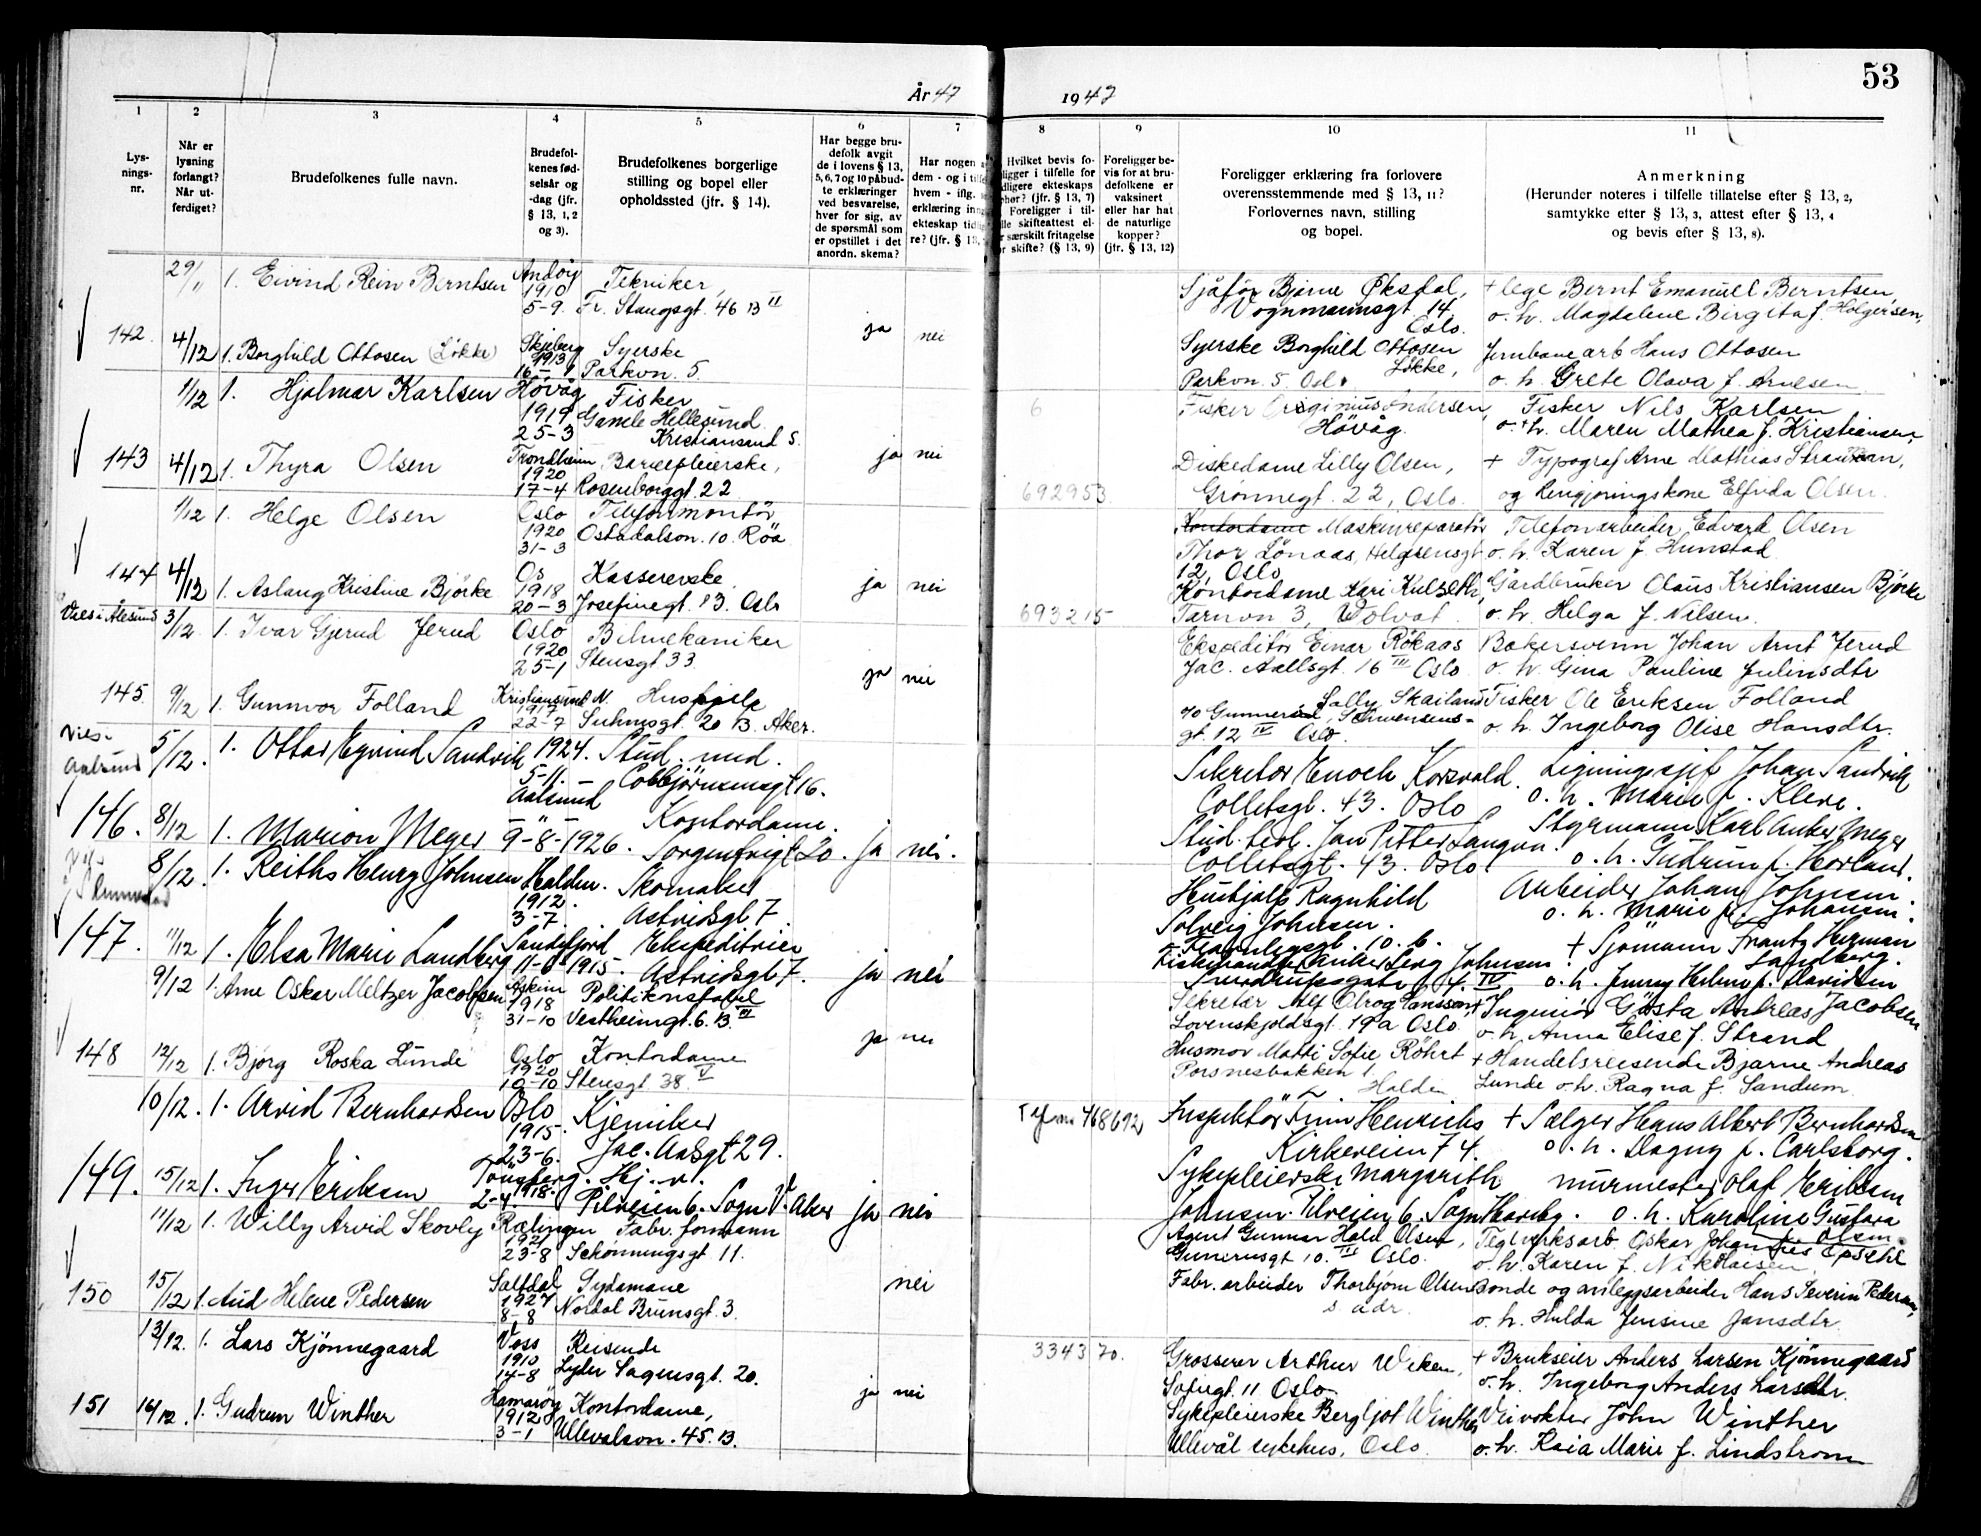 År 47
1947
53
1
2
3
4
5
6
7
8
9
10
11
Lys-
nings-
nr.
Når er
lysning
forlangt?
Når ut-
ferdiget?
Brudefolkenes fulle navn.
Brudefol-
kenes fød-
selsår og
-dag (jfr.
§ 13, 1, 2
og 3).
Brudefolkenes borgerlige
stilling og bopel eller
opholdssted (jfr. § 14).
Har begge bru-
defolk avgit
de i lovens § 13,
5, 6, 7 og 10 påbud-
te erklæringer
ved besvarelse,
hver for sig, av
de spørsmål som
er opstillet i det
anordn. skema?
Har nogen
dem - og i
hvem - iflg.
erklæring
ekteskap
re? (jfr. § 13,
Hvilket bevis fo-
religger i tilfelle for
ekteskaps
(jfr. § 13, 7)
Foreligger i til-
skifteattest el-
særskilt fritagelse
skifte? (§ 13, 9)
Foreligger be-
vis for at bru-
defolkene er
vaksinert
eller har hat
de naturlige
kopper?
(jfr. § 13, 12)
Foreligger erklæring fra forlovere
overensstemmende med § 13, 11?
Forlovernes navn, stilling
og bopel.
Anmerkning
(Herunder noteres i tilfelle tillatelse efter § 13, 2,
samtykke efter § 13, 3, attest efter § 13, 4
og bevis efter § 13, 8).
29/11 1. Eivind Rein Berntsen
Andøy
1910
5-9.
Tekniker,
Fr. Stangsgt. 46 B II
Sjåfør Bjarne Øksdal,
Vognmannsgt. 14
Oslo.
+ lege Bernt Emanuel Berntsen,
o. h. Magdalene Birgita f. Holgersen,
142. 4/12 1. Borghild Ottosen (Løkke)
Skjeberg
1913
Syerske
Parkvn. 5
ja nei
Syerske Borghild Ottosen
Løkke,
Parkvn. 5. Oslo
Jernbanearb Hans Ottosen
o. h. Grete Olava f. Arnesen
1/12 1. Hjalmar Karlsen
Høvåg
1914
25-3
Fisker
Gamle Hellesund
Kristiansand S.
6
Fisker Andersen,
Høvåg.
Fisker Nils Karlsen
o. + h. Maren Mathea f. Kristiansen,
143 4/12 1. Thyra Olsen
Trondheim
1920
17-4
Barnepleierske,
Rosenborggt. 22
ja nei
692953
Diskedame Lilly Olsen,
Grønnegt. 22, Oslo.
+ Typograf Arne Mathias
og Rengjøringskone Elfrida Olsen.
1/12 1. Helge Olsen
Oslo
1920
31-3
Telefonmontør
Ostadalsvn. 10. Røa
Kontordame Maskinreparatør
Thor Lönaas, Helgesensgt
12, Oslo
Telefonarbeider Edvard Olsen
o. h. Karen f. Hunstad
144 4/12 1. Aslaug Kristine Bjørke
Os
1918
20-3
Kassererske
Josefinegt. 13. Oslo
ja nei
693215
Kontordame Kari Kulseth,
Tarnvn 3,
Gårdbruker Olaus Kristiansen Bjørke
o. h. Helga f. Nilsen.
Vies i Ålesund
3/12. 1. Ivar Gjerud Jerud
Oslo
1920
25-1
Bilmekaniker
Stensgt 33
Ekspeditør Einar Røkaas
Jac. Aallsgt. 16 III Oslo
Bakersvenn Johan Arnt Jerud
o. h. Gina Pauline Julinsdtr
145. 9/12 1. Gunnvor Folland
Kristiansund N.
1917
22-7
Hushjelp
Suhmsgt. 20 B. Aker.
ja nei
Sally Skailand
c/o Gunnerud, Schwensens-
gt. 12 IV Oslo.
Fisker Ole Eriksen Folland
o. h. Ingeborg Olise Hansdtr.
vies
Aalesund
5/12. 1. Ottar Eyvind Sandvik
1924.
5-11.
Aalesund
Stud. med.
16.
Sekretær Enoch Korsvold.
Colletsgt. 43. Oslo
Ligningssjef Johan Sandvik
o. h. Marie f. Kleve.
146. 8/12 1. Marion Meyer
9-8-1926.
Kontordame.
Sorgenfrigt. 20.
ja nei.
Stud. teol. Jan Petter Langva.
Colletsgt. 43. Oslo
Styrmann Karl Anker Meyer
o. h. Gudrun f. Horland.
8/12. 1. Reiths Henry Johnsen
Halden.
1912.
3-7.
Skomaker
Astridsgt 7
Hushjelp Ragnhild
Solveig Johnsen.
10. b.
Arbeider Johan Johnsen.
o. h. Marie f. Johansen.
147. 11/12 1. Elsa Marie Landberg
Sandefjord
11-6-1915.
Ekspeditrise
Astridsgt 7.
ja nei
Fiskehandler Anker Serg Johnsen.
IV
+ Sjömann Frantz Herman
Landberg.
o. h. Jenny Helene f. Davidsen
9/12 1. Arne Oskar Meltzer Jacobsen
Askim
1918
31-10
Politikonstabel
Vestheimgt. 6. B. III
Sekretær Alf Olrog Hanssen,
Lovenskjoldsgt. 19a Oslo
+ Ingeniør Gösta Andreas Jacobsen
o. h. Anna Elise f. Strand
148 12/12 1. Bjørg Roska Lunde
Oslo
1920
10-10
Kontordame
Stensgt. 38. V
ja nei
Husmor Matti Sofie Röhrt
Porsnesbakken 1.
Halden
+ Handelsreisende Bjarne Andreas
Lunde o. h. Ragna f. Sandum.
10/12. 1. Arvid Bernhardsen
Oslo
1915.
23-6.
Kjemiker
Jac. Aallsgt 29.
468692
Inspektör Finn Henrichs
Kirkeveien 74.
+ Sælger Hans Albert Bernhardsen
o. h. Dagny f. Carlsborg.
149. 15/12 1. Inger Eriksen
Tönsberg.
2-4. 1918.
Hj. v.
Pilveien 6. Sogn V. Aker
ja nei
Sykepleierske Margarith
Johnsen. Pilveien 6. Sogn Haveby.
murmester Olaf Eriksen
o. h. Karoline Gustava
Olsen.
11/12 1. Willy Arvid Skovly
Rælingen
1921
23-8
Fabr. formann
Schønningsgt 11.
Agent Gunnar Hald Olsen,
Gunerusgt 10. III Oslo.
Teglverksarb. Oskar Johannes
o. h. Karen f. Nikolaisen
150 15/12 1. Aud Helene Pedersen
Saltdal
1927
8-8
Sydamane
Nordal Brunsgt. 3.
nei
Fabr. arbeider Thorbjørn Olsen
s. adr.
Bonde og anleggsarbeider Hans Severin Pedersen,
o. h. Hulda Jensine Jansdtr.
13/12. 1. Lars Kjønnegaard
Voss
1910
14-8
Reisende
Lyder Sagensgt. 20.
334370.
Grosserer Arthur Weken,
Sofiegt. 11 Oslo
+ Brukseier Anders Larsen Kjønnegaard
o. h. Ingeborg Anders Larsdtr.
151 16/12. 1. Gudrun Winther
Hamarøy
1912
3-1
Kontordame,
Ullevalsvn. 45. B.
ja nei
Sykepleierske Bergljot Winther
Ullevål sykehus, Oslo.
Veivokter John Winther
o. h. Kaia Marie f. Lindstrøm